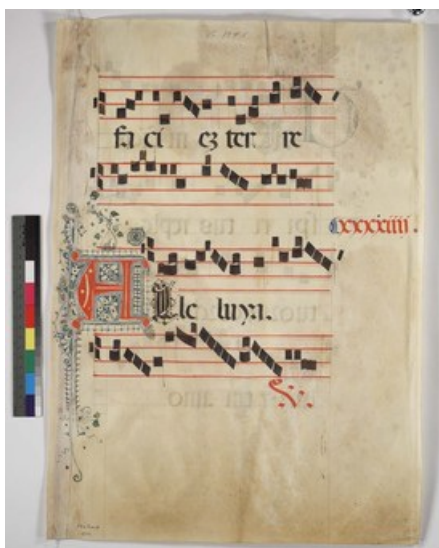 fa ci es ter re
cxxxxiiii.
Alle luya.